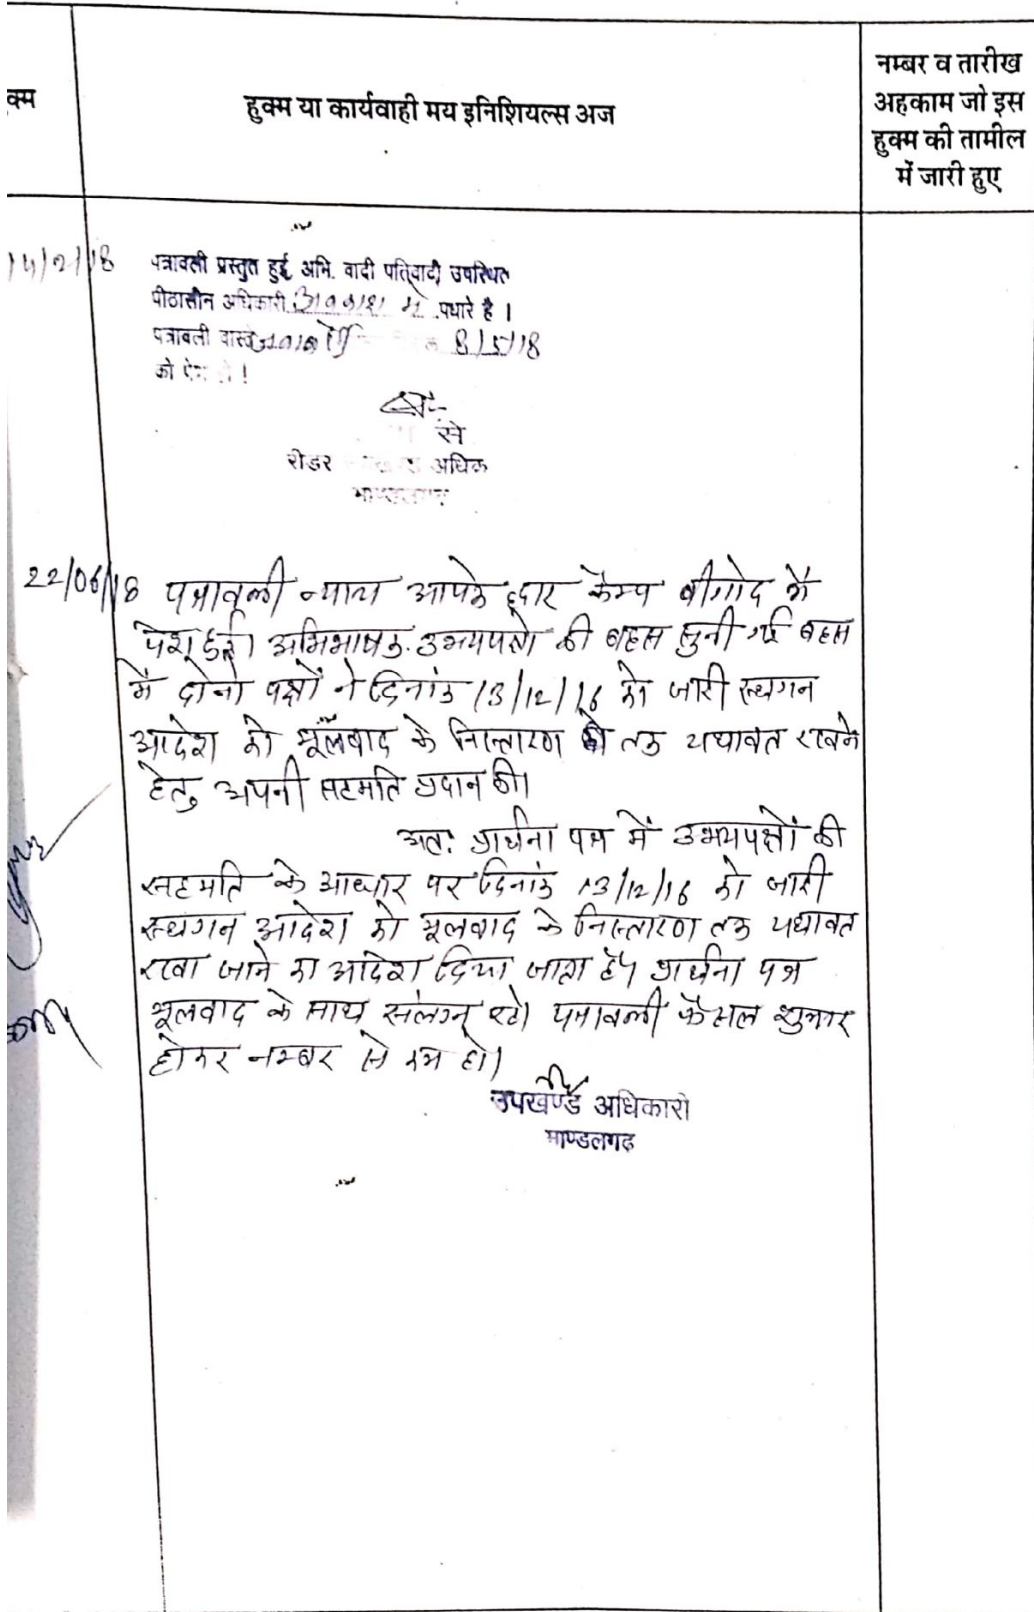 क्म
हुक्म या कार्यवाही मय इनिशियल्स अज
नम्बर व तारीख
अहकाम जो इस
हुक्म की तामील
में जारी हुए
14/2/18 पत्रावली प्रस्तुत हुई अभि. वादी प्रतिवादी उपस्थित
पीठासीन अधिकारी अवकाश में पधारे है ।
पत्रावली वास्ते 8/5/18
को पेश हो !
से
रीडर अधिक
माण्डलगढ़
22/06/18 पत्रावली न्याय आपके द्वार कैम्प बीगोद में
पेश हुई। अभिभाषक उभयपक्षो की बहस सुनी गई बहस
में दोनो पक्षों ने दिनांक 13/12/16 को जारी स्थगन
आदेश को मूलवाद के निस्तारण तक यथावत रखने
हेतु अपनी सहमति प्रदान की।
अतः प्रार्थना पत्र में उभयपक्षों की
सहमति के आधार पर दिनांक 13/12/16 को जारी
स्थगन आदेश को मूलवाद के निस्तारण तक यथावत
रखा जाने का आदेश दिया जाता है। प्रार्थना पत्र
मूलवाद के साथ संलग्न रहे। पत्रावली फैसल शुमार
होकर नम्बर से कम हो।
उपखण्ड अधिकारी
माण्डलगढ